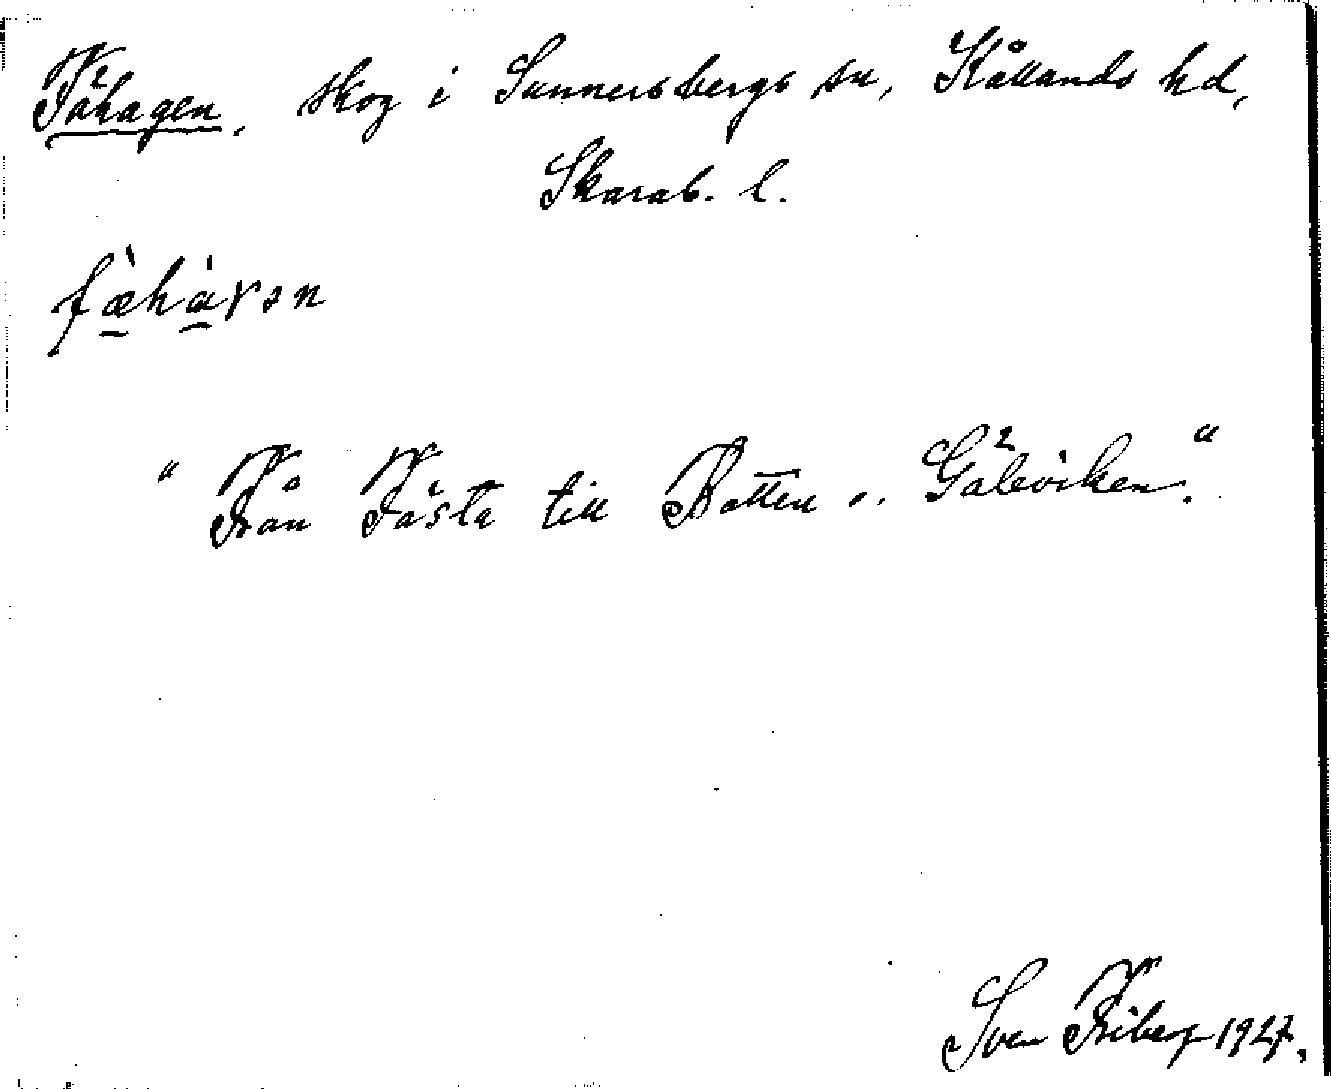 Fähagen, skog i Sunnersbergs sn, Kållands hd,
Skarab. l.
fæ̀hàγən
"Från Fästa till Botten o. Gäleviken."
Sven Friberg 1927.